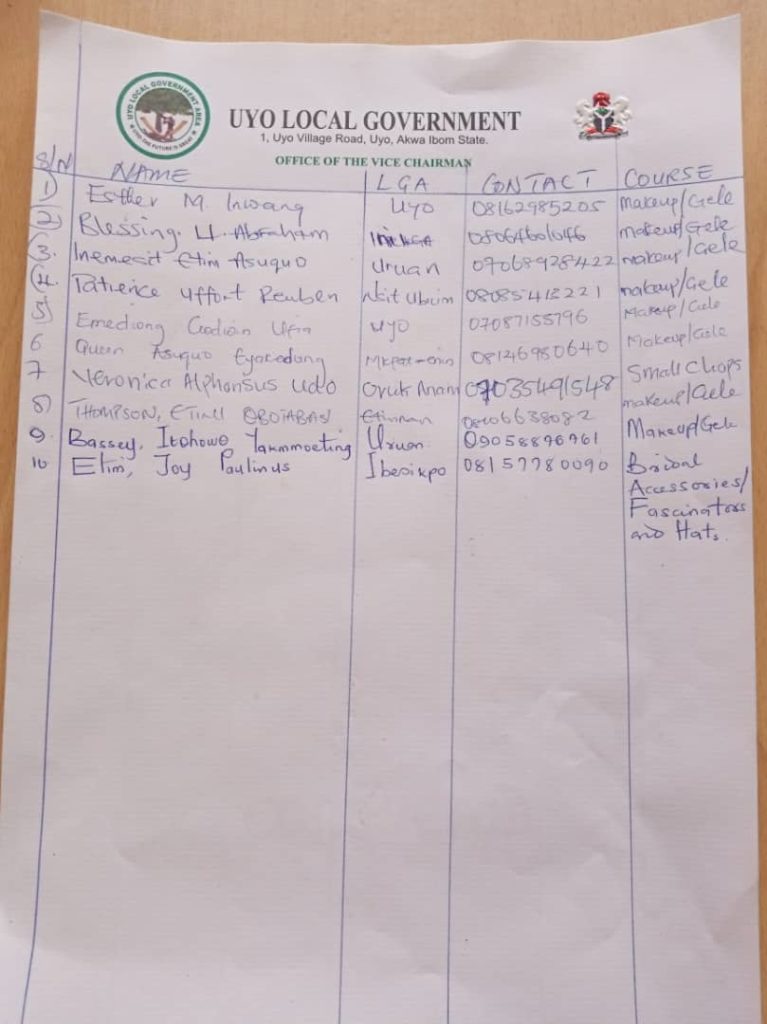 UYO LOCAL GOVERNMENT AREA
UYO LOCAL GOVERNMENT
1, Uyo Village Road, Uyo, Akwa Ibom State.
OFFICE OF THE VICE CHAIRMAN
S/N NAME LGA CONTACT COURSE
1) Esther M Inwang Uyo 08162985205 makeup/Gele
2) Blessing. U. Abraham 08064601046 makeup/Gele
3. Inemesit Etim Asuquo Uruan 07068928422 makeup/Gele
4. Patience Uffort Reuben Nsit Ubium 08085413221 makeup/Gele
5) Emediong Uyo 07087155796 Makeup/Gele
6 Queen Asuquo 08146980640 Makeup/Gele
7 Veronica Alphonsus Udo Oruk Anam 07035491548 Small Chops
makeup/Gele
8) THOMPSON, ETINI OBOTABASI Etinan
9. Bassey, Itohowo Uruan 09058896961 Makeup/Gele
10 Etim, Joy Paulinus Ibesikpo 08157780090 Bridal
Accessories/
Fascinators
and Hats.